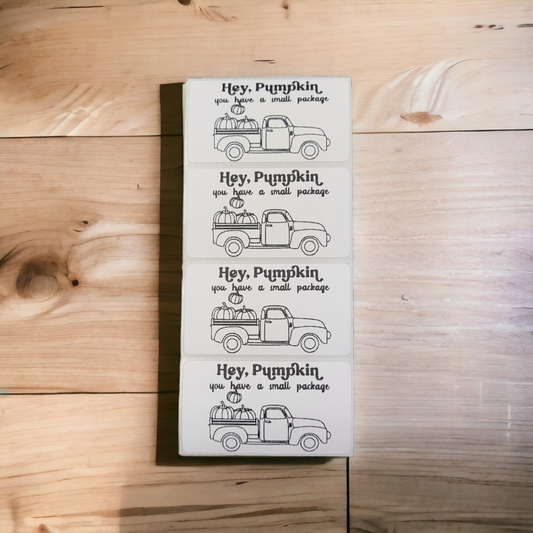 Hey, Pumpkin
you have a small package
Hey, Pumpkin
you have a small package
Hey, Pumpkin
you have a small package
Hey, Pumpkin
you have a small package